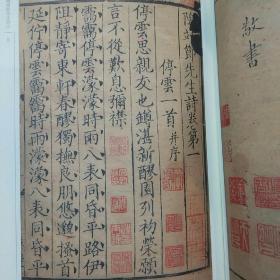 敬書
陶靖節先生詩卷第一
停雲一首并序
停雲思親友也罇湛新醪園列初榮願
言不從歎息彌襟
靄靄停雲濛濛時雨八表同昏平路伊
阻靜寄東軒春醪獨撫良朋悠邈搔首
延佇停雲靄靄時雨濛濛八表同昏平